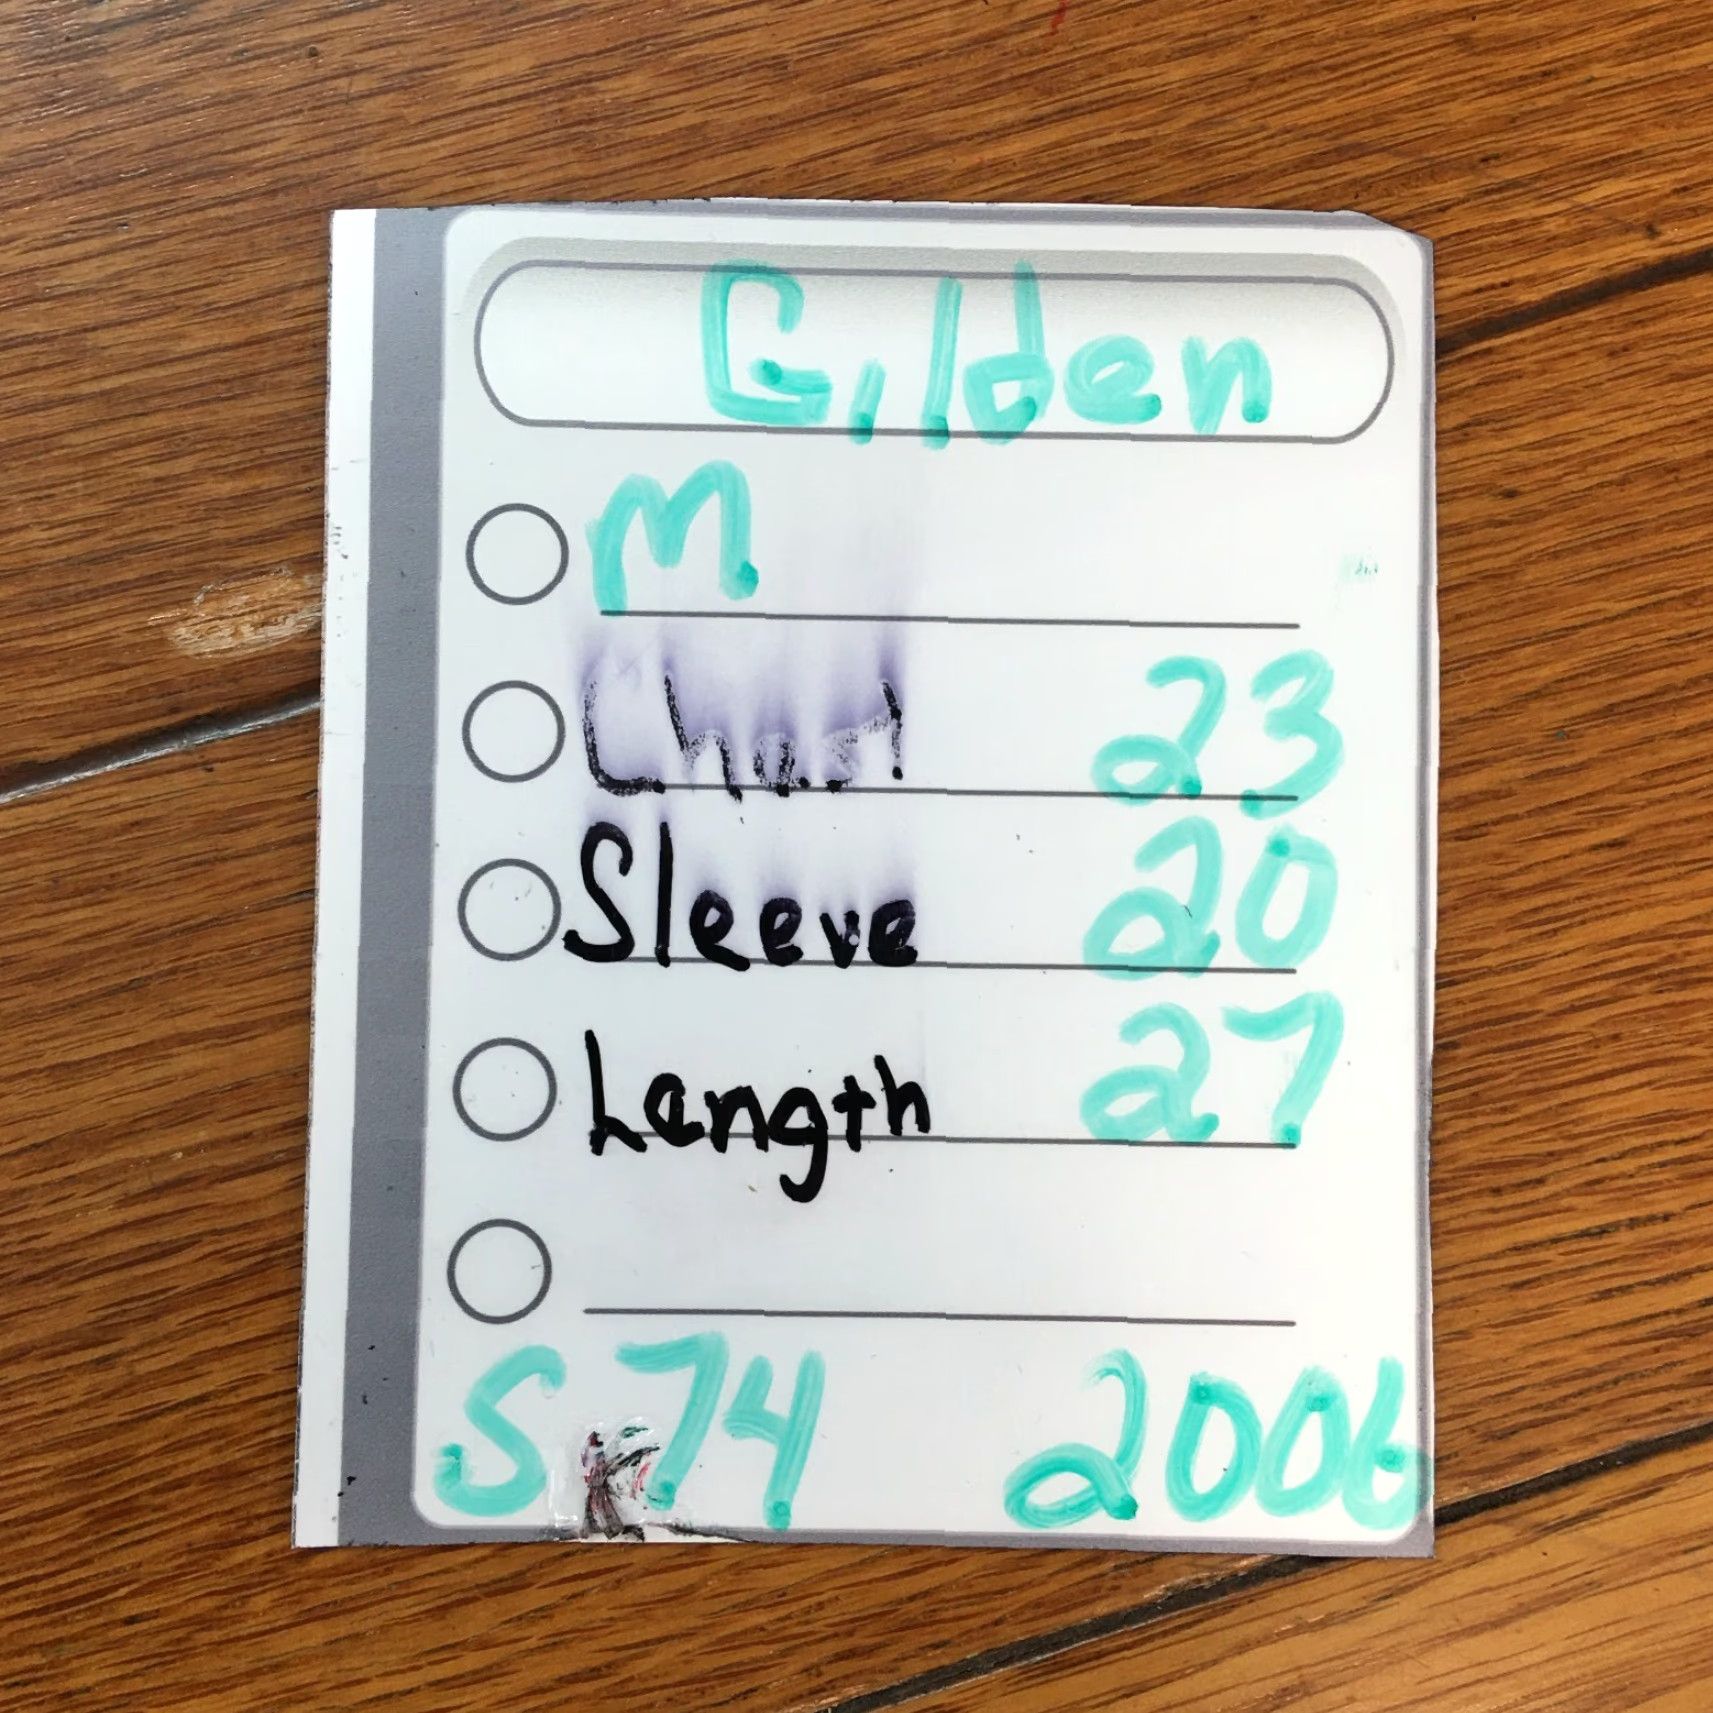 Gilden
M
Chest 23
Sleeve 20
Length 27
S74 2006